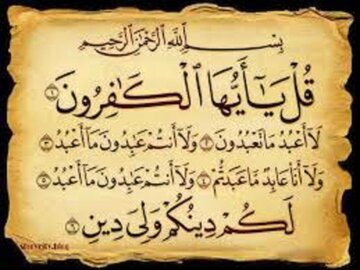 بِسْمِ ٱللَّهِ ٱلرَّحْمَٰنِ ٱلرَّحِيمِ
قُلْ يَا أَيُّهَا ٱلْكَافِرُونَ ١
لَا أَعْبُدُ مَا تَعْبُدُونَ ٢ وَلَا أَنتُمْ عَابِدُونَ مَا أَعْبُدُ ٣
وَلَا أَنَا عَابِدٌ مَّا عَبَدتُّمْ ٤ وَلَا أَنتُمْ عَابِدُونَ مَا أَعْبُدُ ٥
لَكُمْ دِينُكُمْ وَلِيَ دِينِ ٦